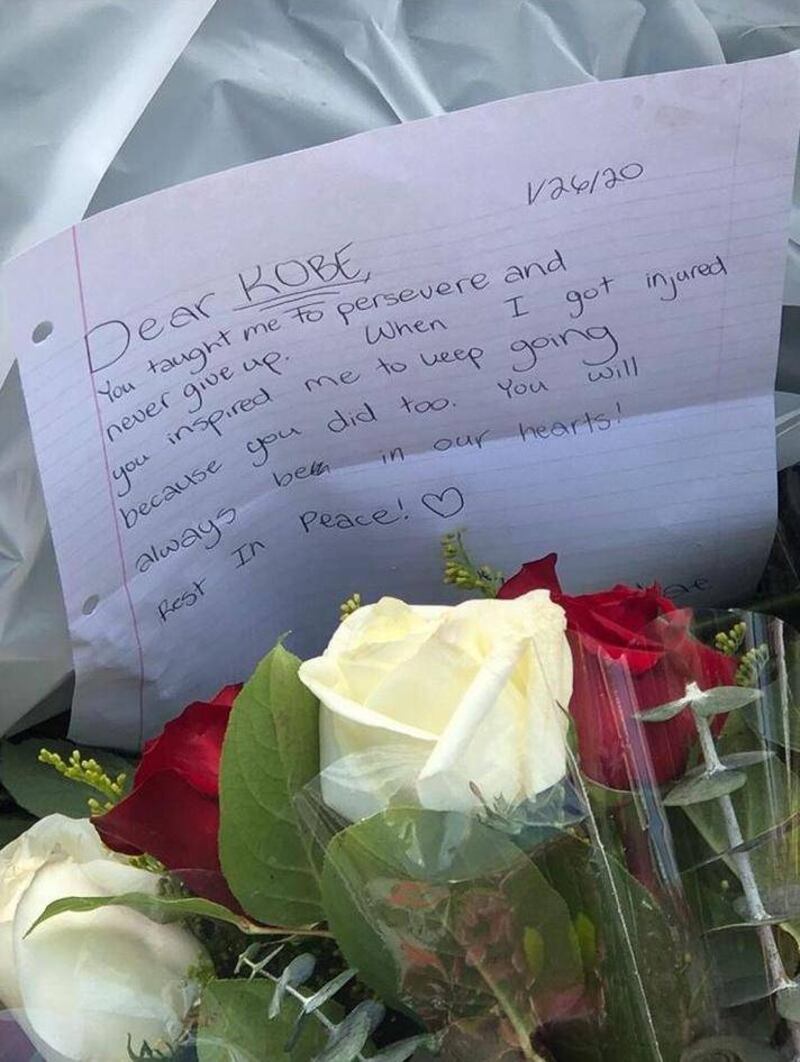 1/26/20
Dear KOBE,
You taught me to persevere and
never give up. When I got injured
you inspired me to keep going
because you did too. You will
always be in our hearts!
Rest In Peace! ♡